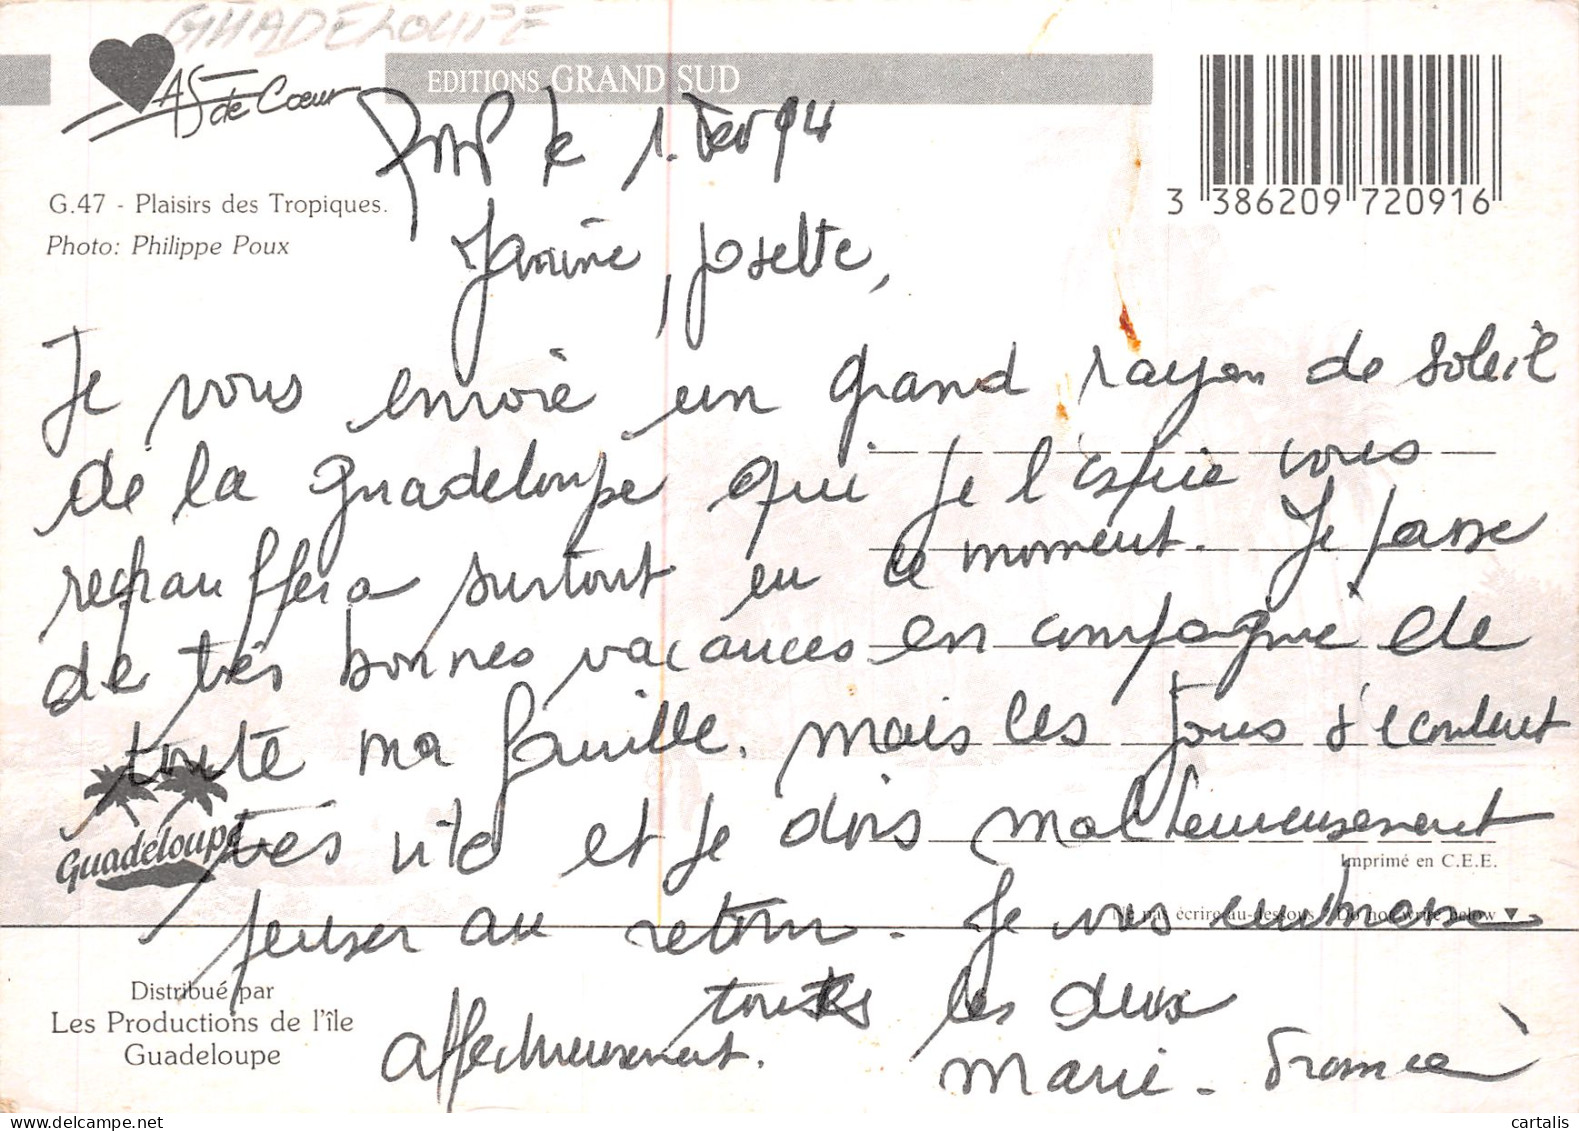 GUADELOUPE
As de Cœur
EDITIONS GRAND SUD
le 1. Fev 94
3 386209 720916
G.47 - Plaisirs des Tropiques.
Photo: Philippe Poux
Janine, Josette,
Je vous envoie un grand rayon de soleil
de la Guadeloupe qui je l'espère vous
rechauffera surtout en ce moment. Je passe
de très bonnes vacances en compagnie de
toute ma famille. mais les jours s'écoulent
très vite et je dois malheureusement
Guadeloupe
Imprimé en C.E.E.
penser au retour. Je vous embrasse
Ne pas écrire au-dessous - Do not write below ▼
toutes les deux
affectueusement.
Marie-France
Distribué par
Les Productions de l'île
Guadeloupe
cartalis